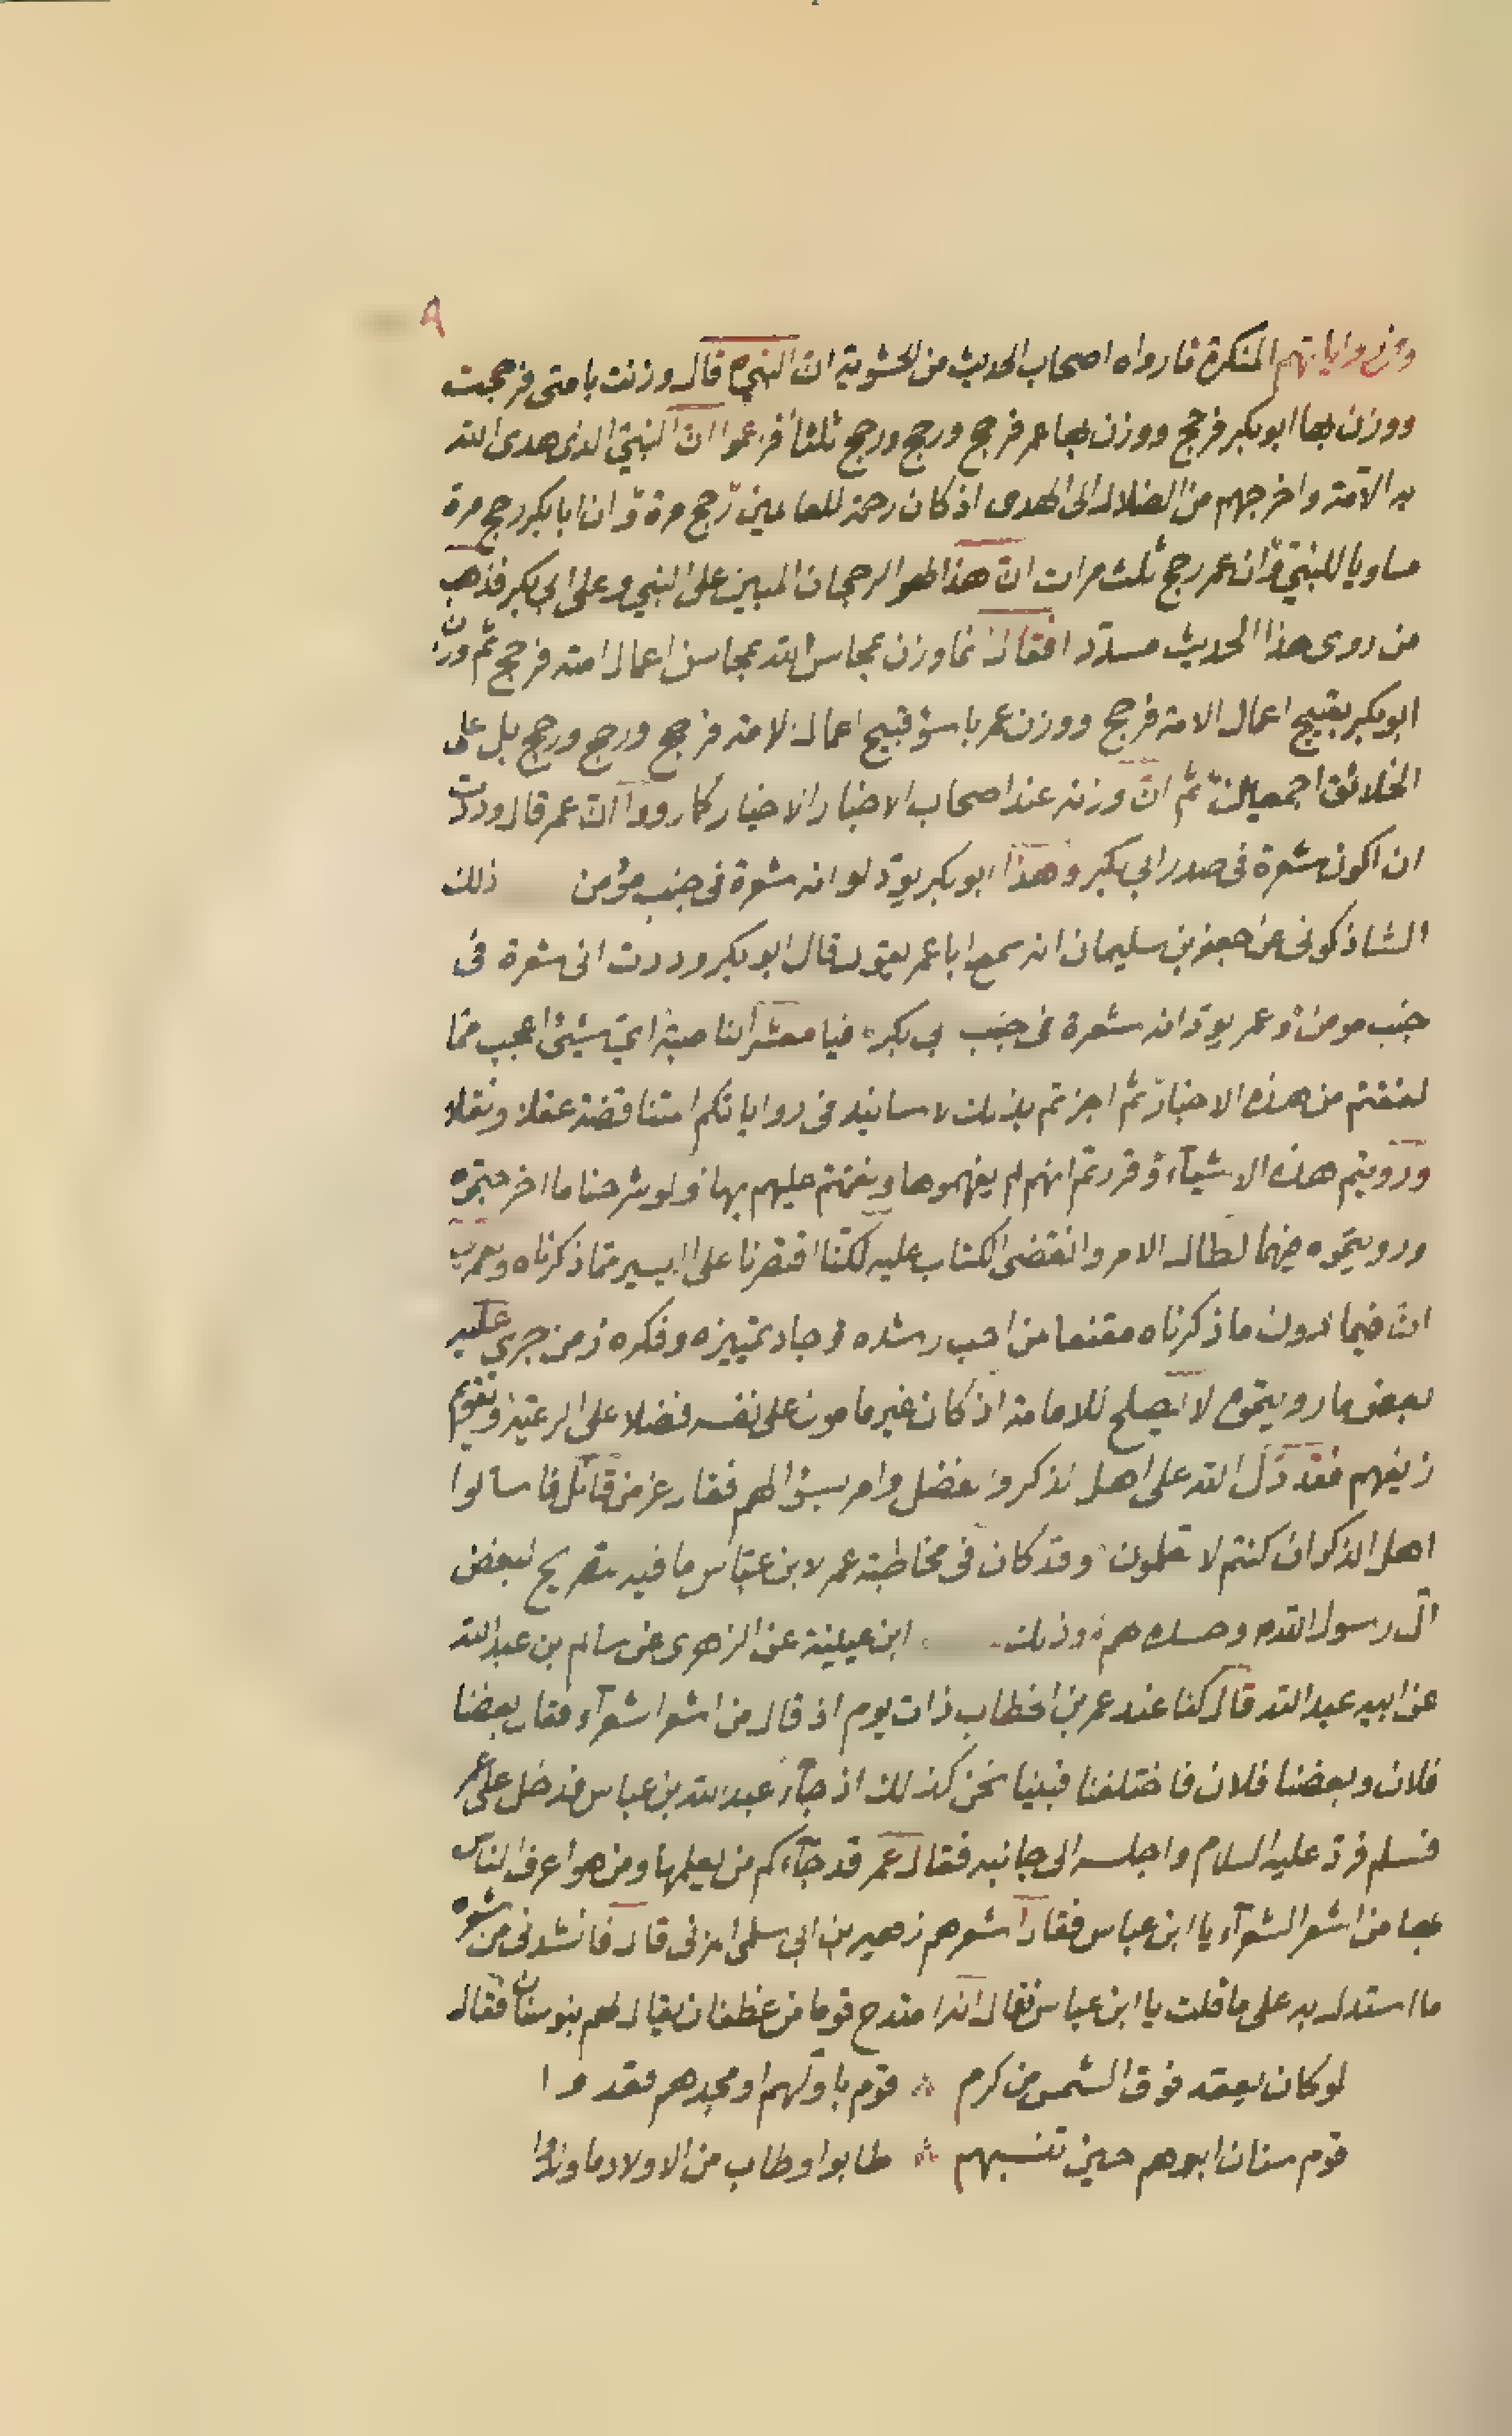 ٩
ومن رواياتهم المنكرة ما رواه اصحاب الحديث من الحشوية ان النبي ص قال وزنت بامتى فرجحت
ووزن بها ابو بكر فرجح ووزن بها عمر فرجح ورجح ورجح ثلثا فزعموا ان النبي الذى هدى الله
به الامة واخرجهم من الضلال الى الهدى اذ كان رحمة للعالمين رجح مرة و ان ابا بكر رجح مرة
مساويا للنبي و ان عمر رجح ثلث مرات ان هذا لهو الرجحان المبين على النبي وعلى ابي بكر فذهب
من روى هذا الحديث فقال انما وزن بمحاسن اعمال امته فرجح ثم وزن
ابو بكر بقبيح اعمال الامة فرجح ووزن عمر باسوء قبيح اعمال الامة فرجح ورجح ورجح بل على
الخلائق اجمعين ثم ان وزنه عند اصحاب الاخبار كما رووا ان عمر قال وددت
ان اكون شعرة فى صدر ابي بكر وهذا ابو بكر يود لو انه شعرة فى جنب مؤمن ذلك
الشاذكونى عن جعفر بن سليمان انه سمع ابا عمر يقول قال ابو بكر وددت انى شعرة فى
جنب مومن و عمر يود انه شعرة فى جنب ابي بكر فيا معشر الناصبة اي شيئ اعجب مما
من هذه الاخبار ثم اجزتم بذلك الاسانيد فى رواياتكم المتناقضة عقلا ونقلا
ورويتم هذه الاشيآء و قررتم انهم لم يفهموها عليهم بها و لو شرحنا ما اخرجتموه
ورويتموه فيهما لطال الامر وانقضى الكتاب عليه لكنا اقتصرنا على اليسير مما ذكرناه
ان فيما دون ما ذكرناه مقنعا من احب رشده و جاد بتمييزه وفكره و من جرى عليه
بعض ما رويتموه لا يصلح للامامة اذ كان غير مامون على نفسه فضلا على الرعية وتقويم
زيغهم فقد دل الله على اهل الذكر و بفضل وامر بسؤالهم فقال عز من قائل فاسالوا
اهل الذكر ان كنتم لا تعلمون وقد كان فى مخاطبة عمر لابن عباس ما فيه تصريح لبعض
آل رسول الله وحسده هم وذلك ابن عيينة عن الزهرى عن سالم بن عبد الله
عن ابيه عبد الله قال كنا عند عمر بن الخطاب ذات يوم اذ قال من اشعر الشعرآء فقال بعضنا
فلان وبعضنا فلان فاختلفنا فبينا نحن كذلك اذ جآء عبد الله بن عباس فدخل على عمر
فسلم فرد عليه السلام واجلسه الى جانبه فقال عمر قد جآءكم من يعلمها ومن هو اعرف الناس
بها من اشعر الشعرآء يا ابن عباس فقال اشعرهم زهير بن ابي سلمى المزنى قال فانشدنى من شعره
ما استدل به على ما قلت يا ابن عباس فقال انه امتدح قوما من غطفان يقال لهم بنو سنان فقال
لو كان يعقد فوق الشمس من كرم ∴ قوم باولهم او مجدهم قعدوا
قوم سنان ابوهم حين تنسبهم ∴ طابوا وطاب من الاولاد ما ولدوا